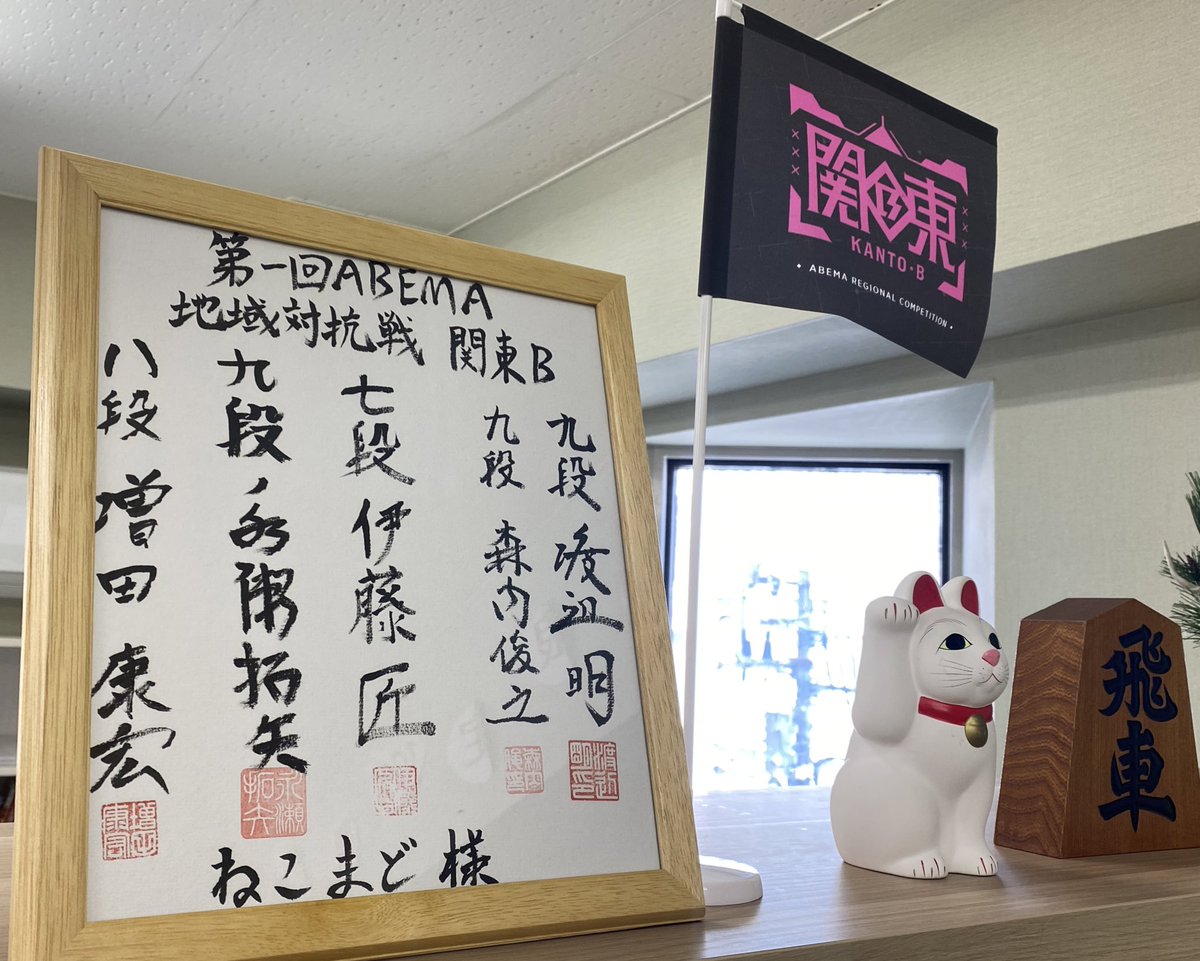 第一回ABEMA
地域対抗戦 関東B
九段 渡辺 明
九段 森内俊之
七段 伊藤 匠
九段 永瀬拓矢
八段 増田 康宏
ねこまど 様
関東
KANTO・B
• ABEMA REGIONAL COMPETITION •
飛車